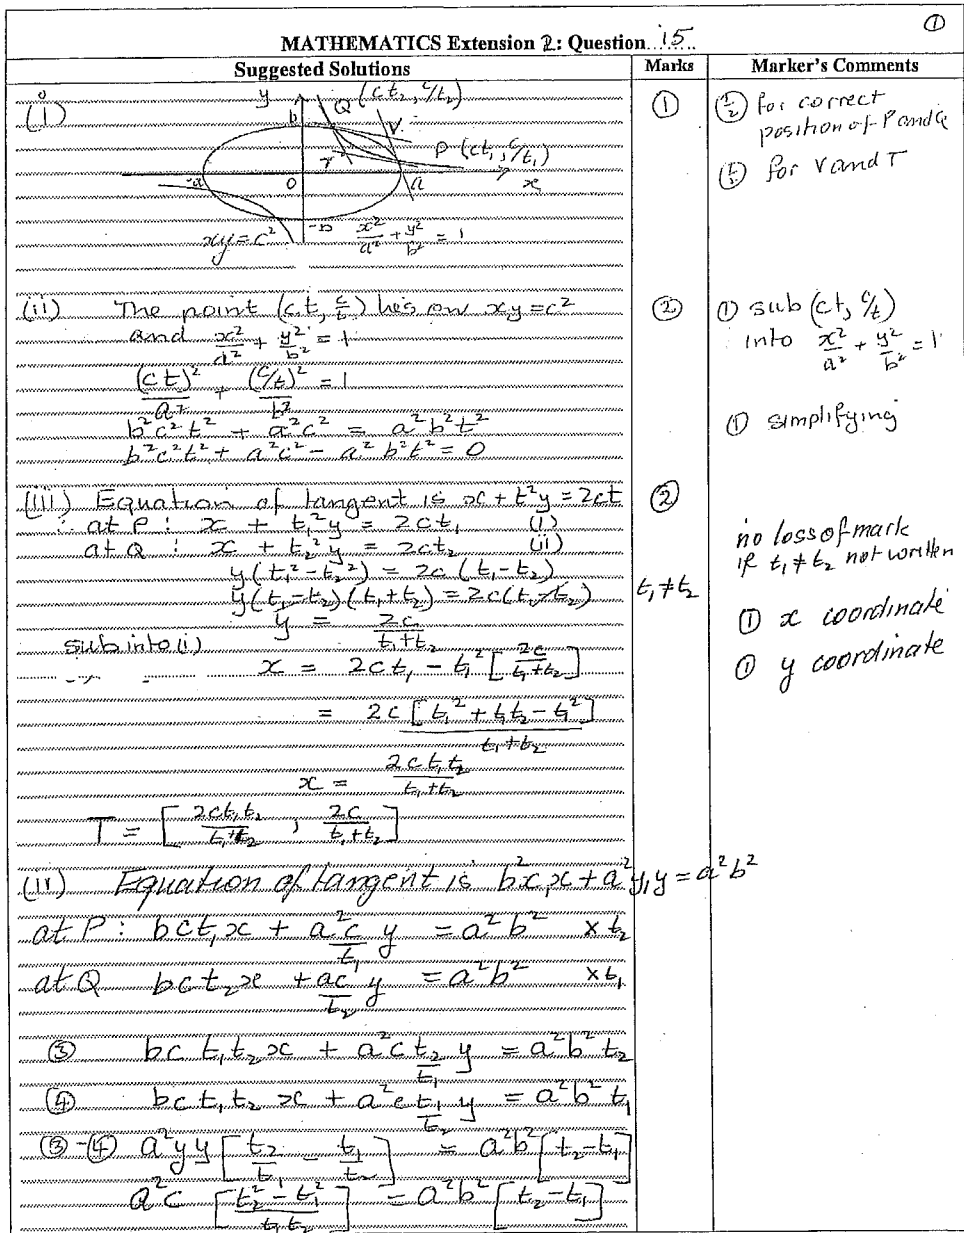 ①
MATHEMATICS Extension 2: Question 15
Suggested Solutions
Marks
Marker's Comments
(i)
y
Q (ct₂, c/t₂)
b
V
T
P (ct₁, c/t₁)
-a
0
a
x
-b
xy = c²
x²/a² + y²/b² = 1
①
(½) for correct
position of P and Q
(½) for V and T
(ii) The point (ct, c/t) lies on xy = c²
and x²/a² + y²/b² = 1
(ct)²/a² + (c/t)²/b² = 1
b²c²t² + a²c² = a²b²t²
b²c²t² + a²c² - a²b²t² = 0
②
① sub (ct, c/t)
into x²/a² + y²/b² = 1
① simplifying
(iii) Equation of tangent is x + t²y = 2ct
∴ at P : x + t₁²y = 2ct₁ (i)
at Q : x + t₂²y = 2ct₂ (ii)
y(t₁² - t₂²) = 2c (t₁ - t₂)
y(t₁ - t₂)(t₁ + t₂) = 2c(t₁ - t₂) t₁ ≠ t₂
y = 2c/(t₁ + t₂)
sub into (i)
x = 2ct₁ - t₁² [2c/(t₁ + t₂)]
= 2c [t₁² + t₁t₂ - t₁²]/(t₁ + t₂)
x = 2ct₁t₂/(t₁ + t₂)
T = [2ct₁t₂/(t₁ + t₂), 2c/(t₁ + t₂)]
②
no loss of mark
if t₁ ≠ t₂ not written
① x coordinate
① y coordinate
(iv) Equation of tangent is b²x₁x + a²y₁y = a²b²
at P : bct₁x + a²c/t₁ y = a²b² × t₂
at Q bct₂x + ac/t₂ y = a²b² × t₁
③ bc t₁t₂x + a²c t₂/t₁ y = a²b² t₂
④ bct₁t₂ x + a²c t₁/t₂ y = a²b² t₁
③-④ a²yy [t₂/t₁ - t₁/t₂] = a²b² [t₂ - t₁]
a²c [(t₂² - t₁²)/t₁t₂] = a²b² [t₂ - t₁]